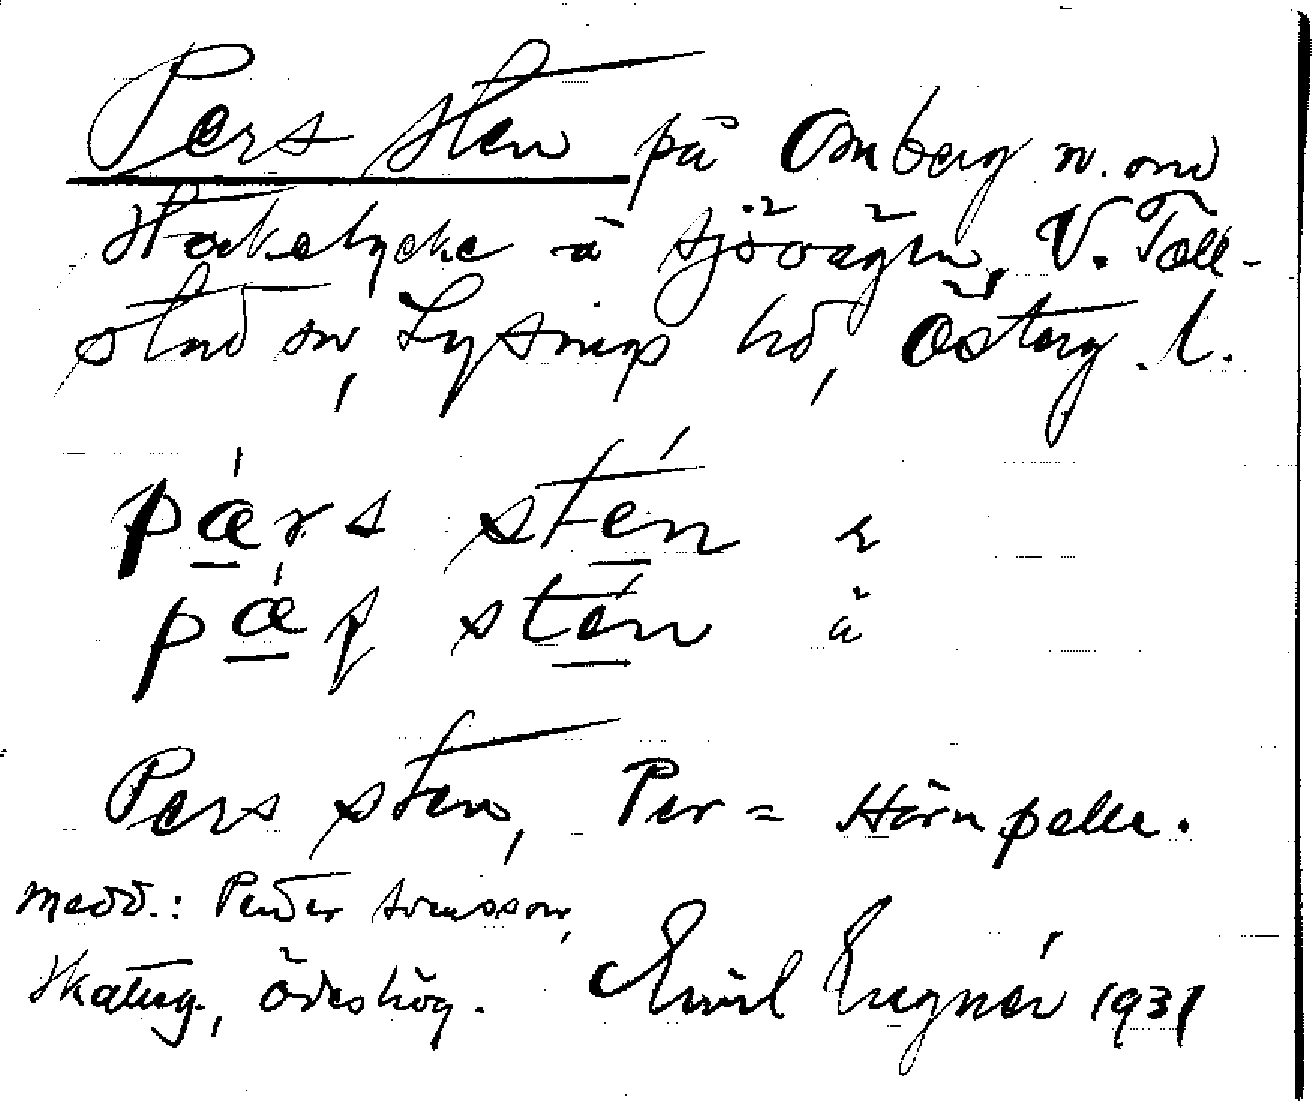 Pers sten på Omberg n. om
Stocketycke å sjövägen, V. Toll-
stad sn, Lysings hd, Österg. l.
pǽ̲rs sté̲n
pǽ̲ʂ sté̲n å
Pers sten, Per = Hörnpelle.
Medd.: Peder Svensson,
Skateg., Ödeshög. Emil Engnér 1931